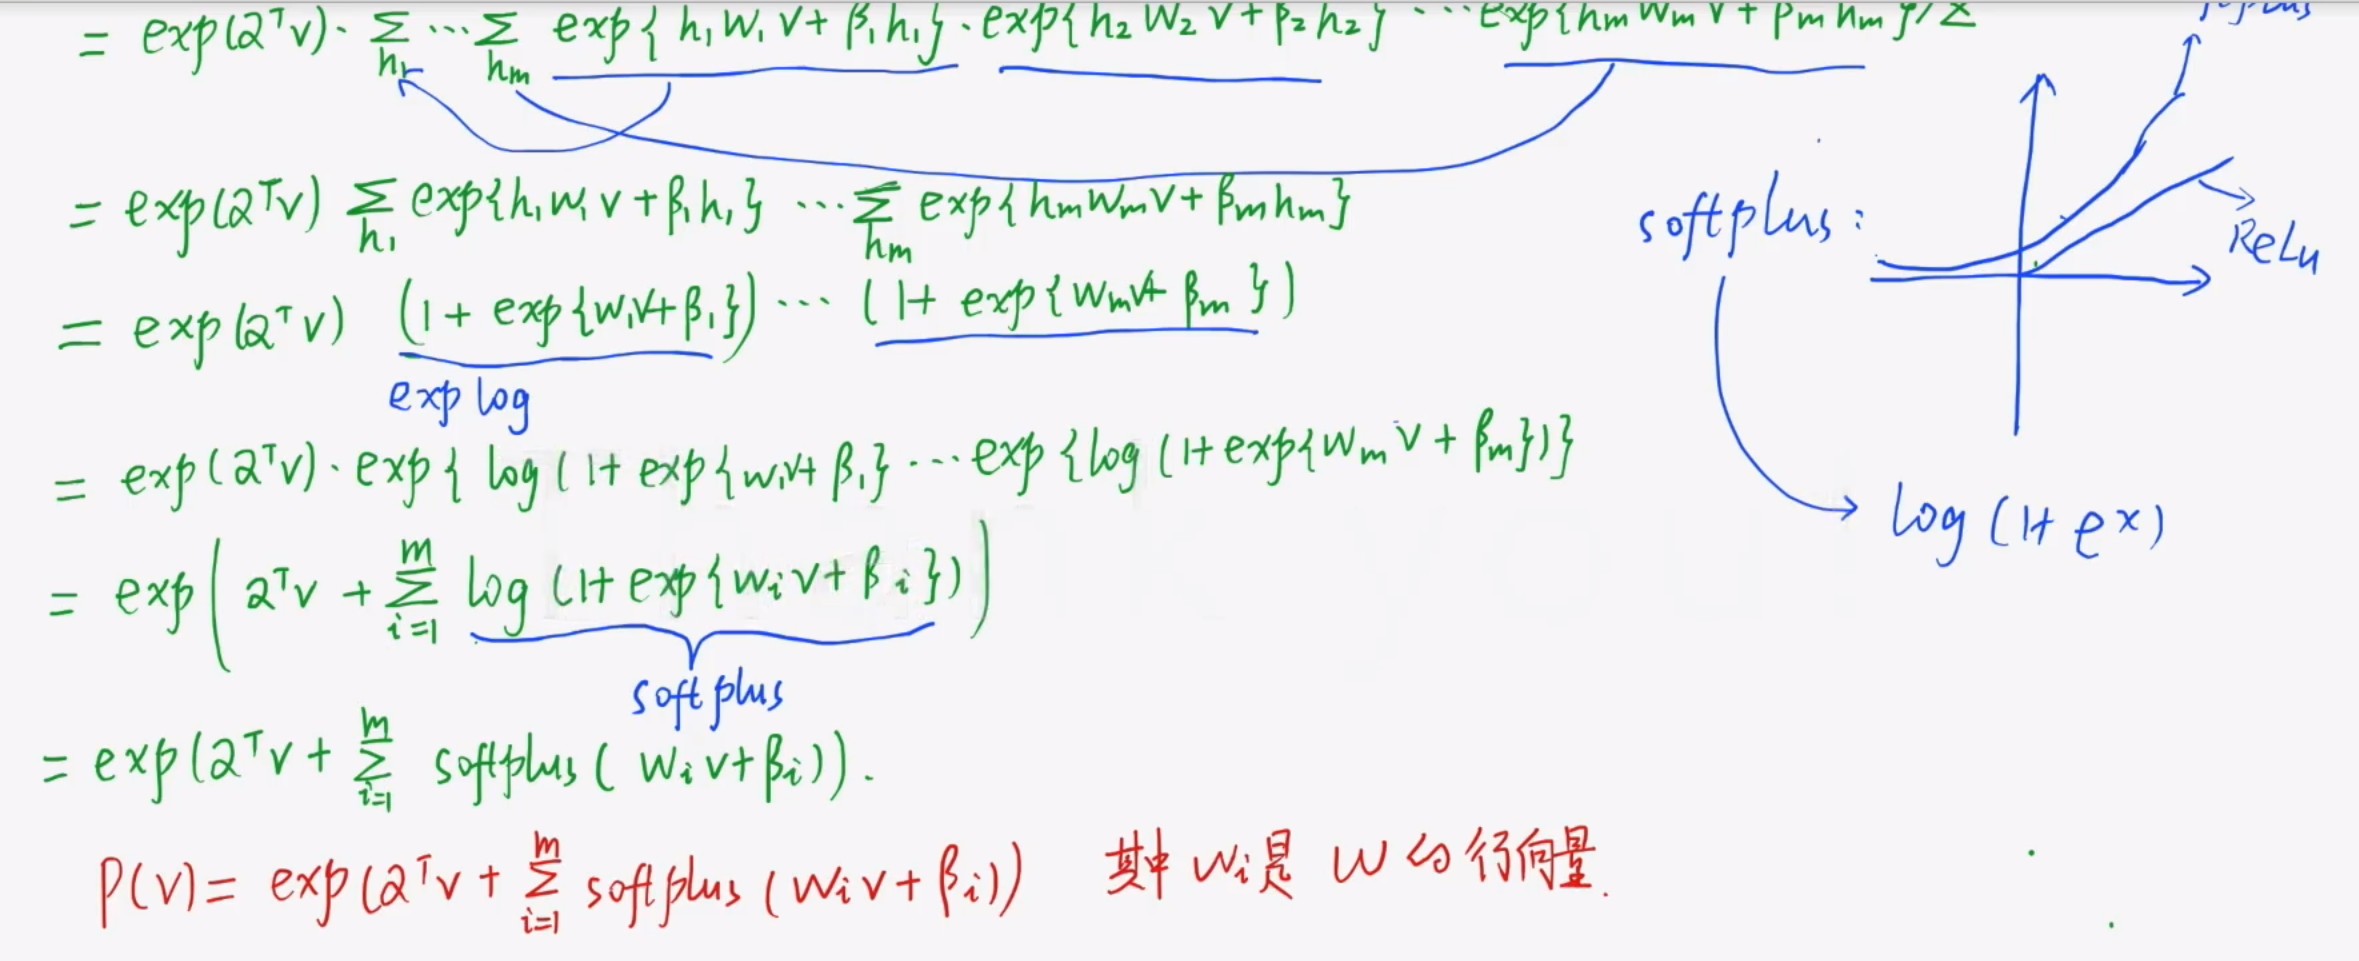 = exp(αᵀv) · Σ_{h₁} ··· Σ_{hm} exp{h₁w₁v+β₁h₁} · exp{h₂w₂v+β₂h₂} ··· exp{hmwmv+βmhm}/Z
= exp(αᵀv) Σ_{h₁} exp{h₁w₁v+β₁h₁} ··· Σ_{hm} exp{hmwmv+βmhm}
softplus:
ReLu
= exp(αᵀv) (1+exp{w₁v+β₁}) ··· (1+exp{wmv+βm})
exp log
= exp(αᵀv) · exp{log(1+exp{w₁v+β₁} ··· exp{log(1+exp{wmv+βm})}
log(1+eˣ)
= exp(αᵀv + Σ_{i=1}^{m} log(1+exp{wᵢv+βᵢ}))
softplus
= exp(αᵀv + Σ_{i=1}^{m} softplus(wᵢv+βᵢ)).
P(v) = exp(αᵀv + Σ_{i=1}^{m} softplus(wᵢv+βᵢ)) 其中 wᵢ是 W 的行向量.